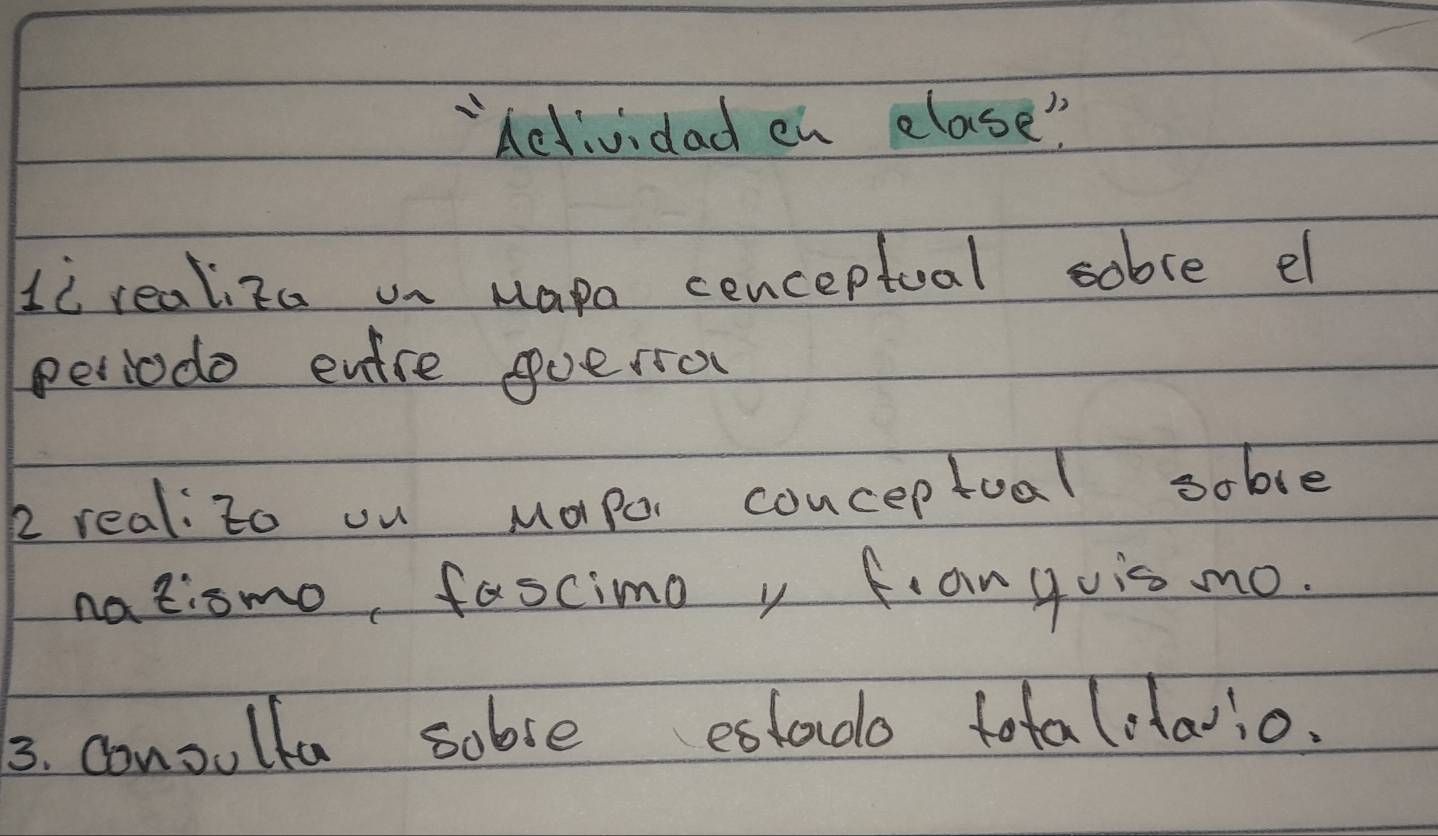 "Actividad en clase".
1¿ realiza un mapa conceptual sobre el
periodo entre guerra
2 realizo un mapa conceptual sobre
nazismo, fascimo y franquismo.
3. consulta sobre estado totalitario.